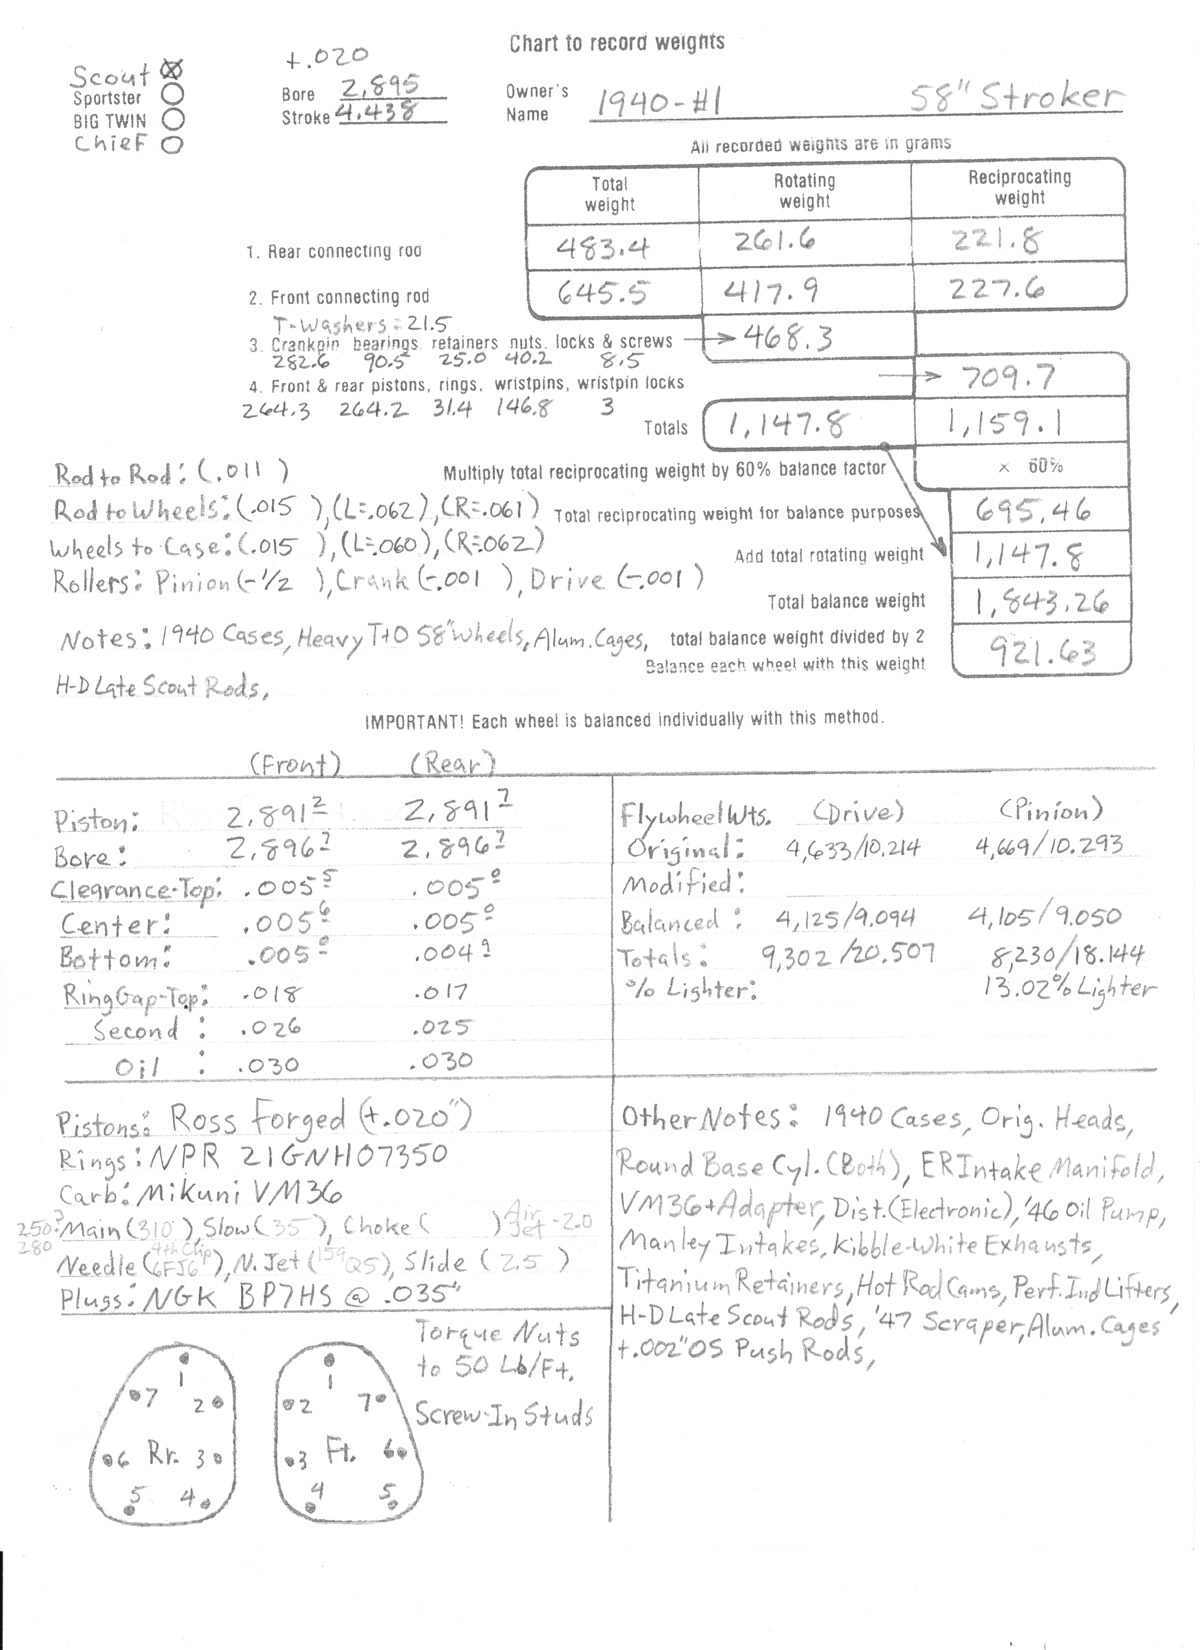 Chart to record weights
Scout
Sportster
BIG TWIN
Chief
+.020
Bore 2.895
Stroke 4.438
Owner's Name 1940-#1 58" Stroker
All recorded weights are in grams
Total weight Rotating weight Reciprocating weight
1. Rear connecting rod 483.4 261.6 221.8
2. Front connecting rod 645.5 417.9 227.6
T-Washers = 21.5
3. Crankpin bearings, retainers nuts, locks & screws 468.3
282.6 90.5 25.0 40.2 8.5
4. Front & rear pistons, rings, wristpins, wristpin locks 709.7
264.3 264.2 31.4 146.8 3
Totals 1,147.8 1,159.1
Rod to Rod: (.011 ) Multiply total reciprocating weight by 60% balance factor x 60%
Rod to Wheels: (.015 ), (L=.062), (R=.061) Total reciprocating weight for balance purposes 695.46
Wheels to Case: (.015 ), (L=.060), (R=.062) Add total rotating weight 1,147.8
Rollers: Pinion (-1/2 ), Crank (-.001 ), Drive (-.001 )
Total balance weight 1,843.26
Notes: 1940 Cases, Heavy T+O 58" Wheels, Alum. Cages, total balance weight divided by 2
Balance each wheel with this weight 921.63
H-D Late Scout Rods,
IMPORTANT! Each wheel is balanced individually with this method.
(Front) (Rear)
Piston: 2.891 2 2.891 7
Bore: 2.896 7 2.896 7
Clearance-Top: .005 5 .005 0
Center: .005 6 .005 0
Bottom: .005 0 .004 9
Ring Gap-Top: .018 .017
Second : .026 .025
Oil : .030 .030
Flywheel Wts. (Drive) (Pinion)
Original: 4,633/10.214 4,669/10.293
Modified:
Balanced: 4,125/9.094 4,105/9.050
Totals: 9,302/20.507 8,230/18.144
% Lighter: 13.02% Lighter
Pistons: Ross Forged (+.020")
Rings: NPR 21GNH07350
Carb: Mikuni VM36
250? Main (310 ), Slow (35 ), Choke ( ) Air Jet - 2.0
280
4th Clip
Needle (6FJ6 ), N. Jet (159 Q5), Slide ( 2.5 )
Plugs: NGK BP7HS @ .035"
Other Notes: 1940 Cases, Orig. Heads,
Round Base Cyl. (Both), ER Intake Manifold,
VM36+Adapter, Dist. (Electronic), '46 Oil Pump,
Manley Intakes, Kibble-White Exhausts,
Titanium Retainers, Hot Rod Cams, Perf. Ind Lifters,
H-D Late Scout Rods, '47 Scraper, Alum. Cages
+.002" OS Push Rods,
Torque Nuts
to 50 Lb/Ft.
Screw-In Studs
1
7 2
6 Rr. 3
5 4
1
2 7
3 Ft. 6
4 5